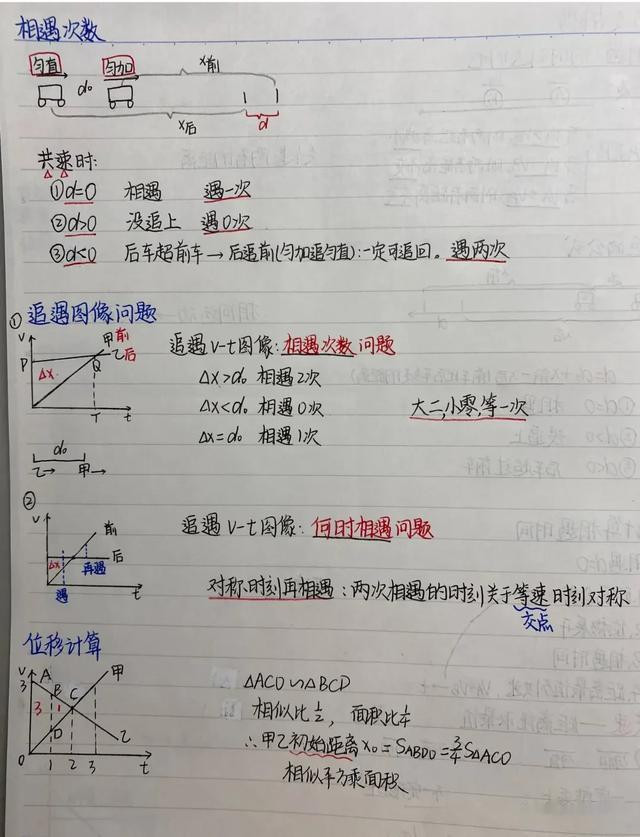 相遇次数
匀直 d₀ 匀加 x前
x后 d
共速时:
①d=0 相遇 遇一次
②d>0 没追上 遇0次
③d<0 后车超前车→后追前(匀加追匀直):一定可追回。遇两次
① 追遇图像问题
V 甲前
P Q 乙后
Δx
T t
d₀
乙→ 甲→
追遇V-t图像:相遇次数问题
Δx>d₀ 相遇2次
Δx<d₀ 相遇0次 大二,小零,等一次
Δx=d₀ 相遇1次
②
V 前
后
Δx 再遇
遇 t
追遇V-t图像:何时相遇问题
对称时刻再相遇:两次相遇的时刻关于等速时刻对称
交点
位移计算
V 甲
3 A
B
3 1 C
D 乙
0 1 2 3 t
△ACO∽△BCD
相似比½,面积比¼
∴甲乙初始距离x₀=SABDO=¾S△ACO
相似平方乘面积